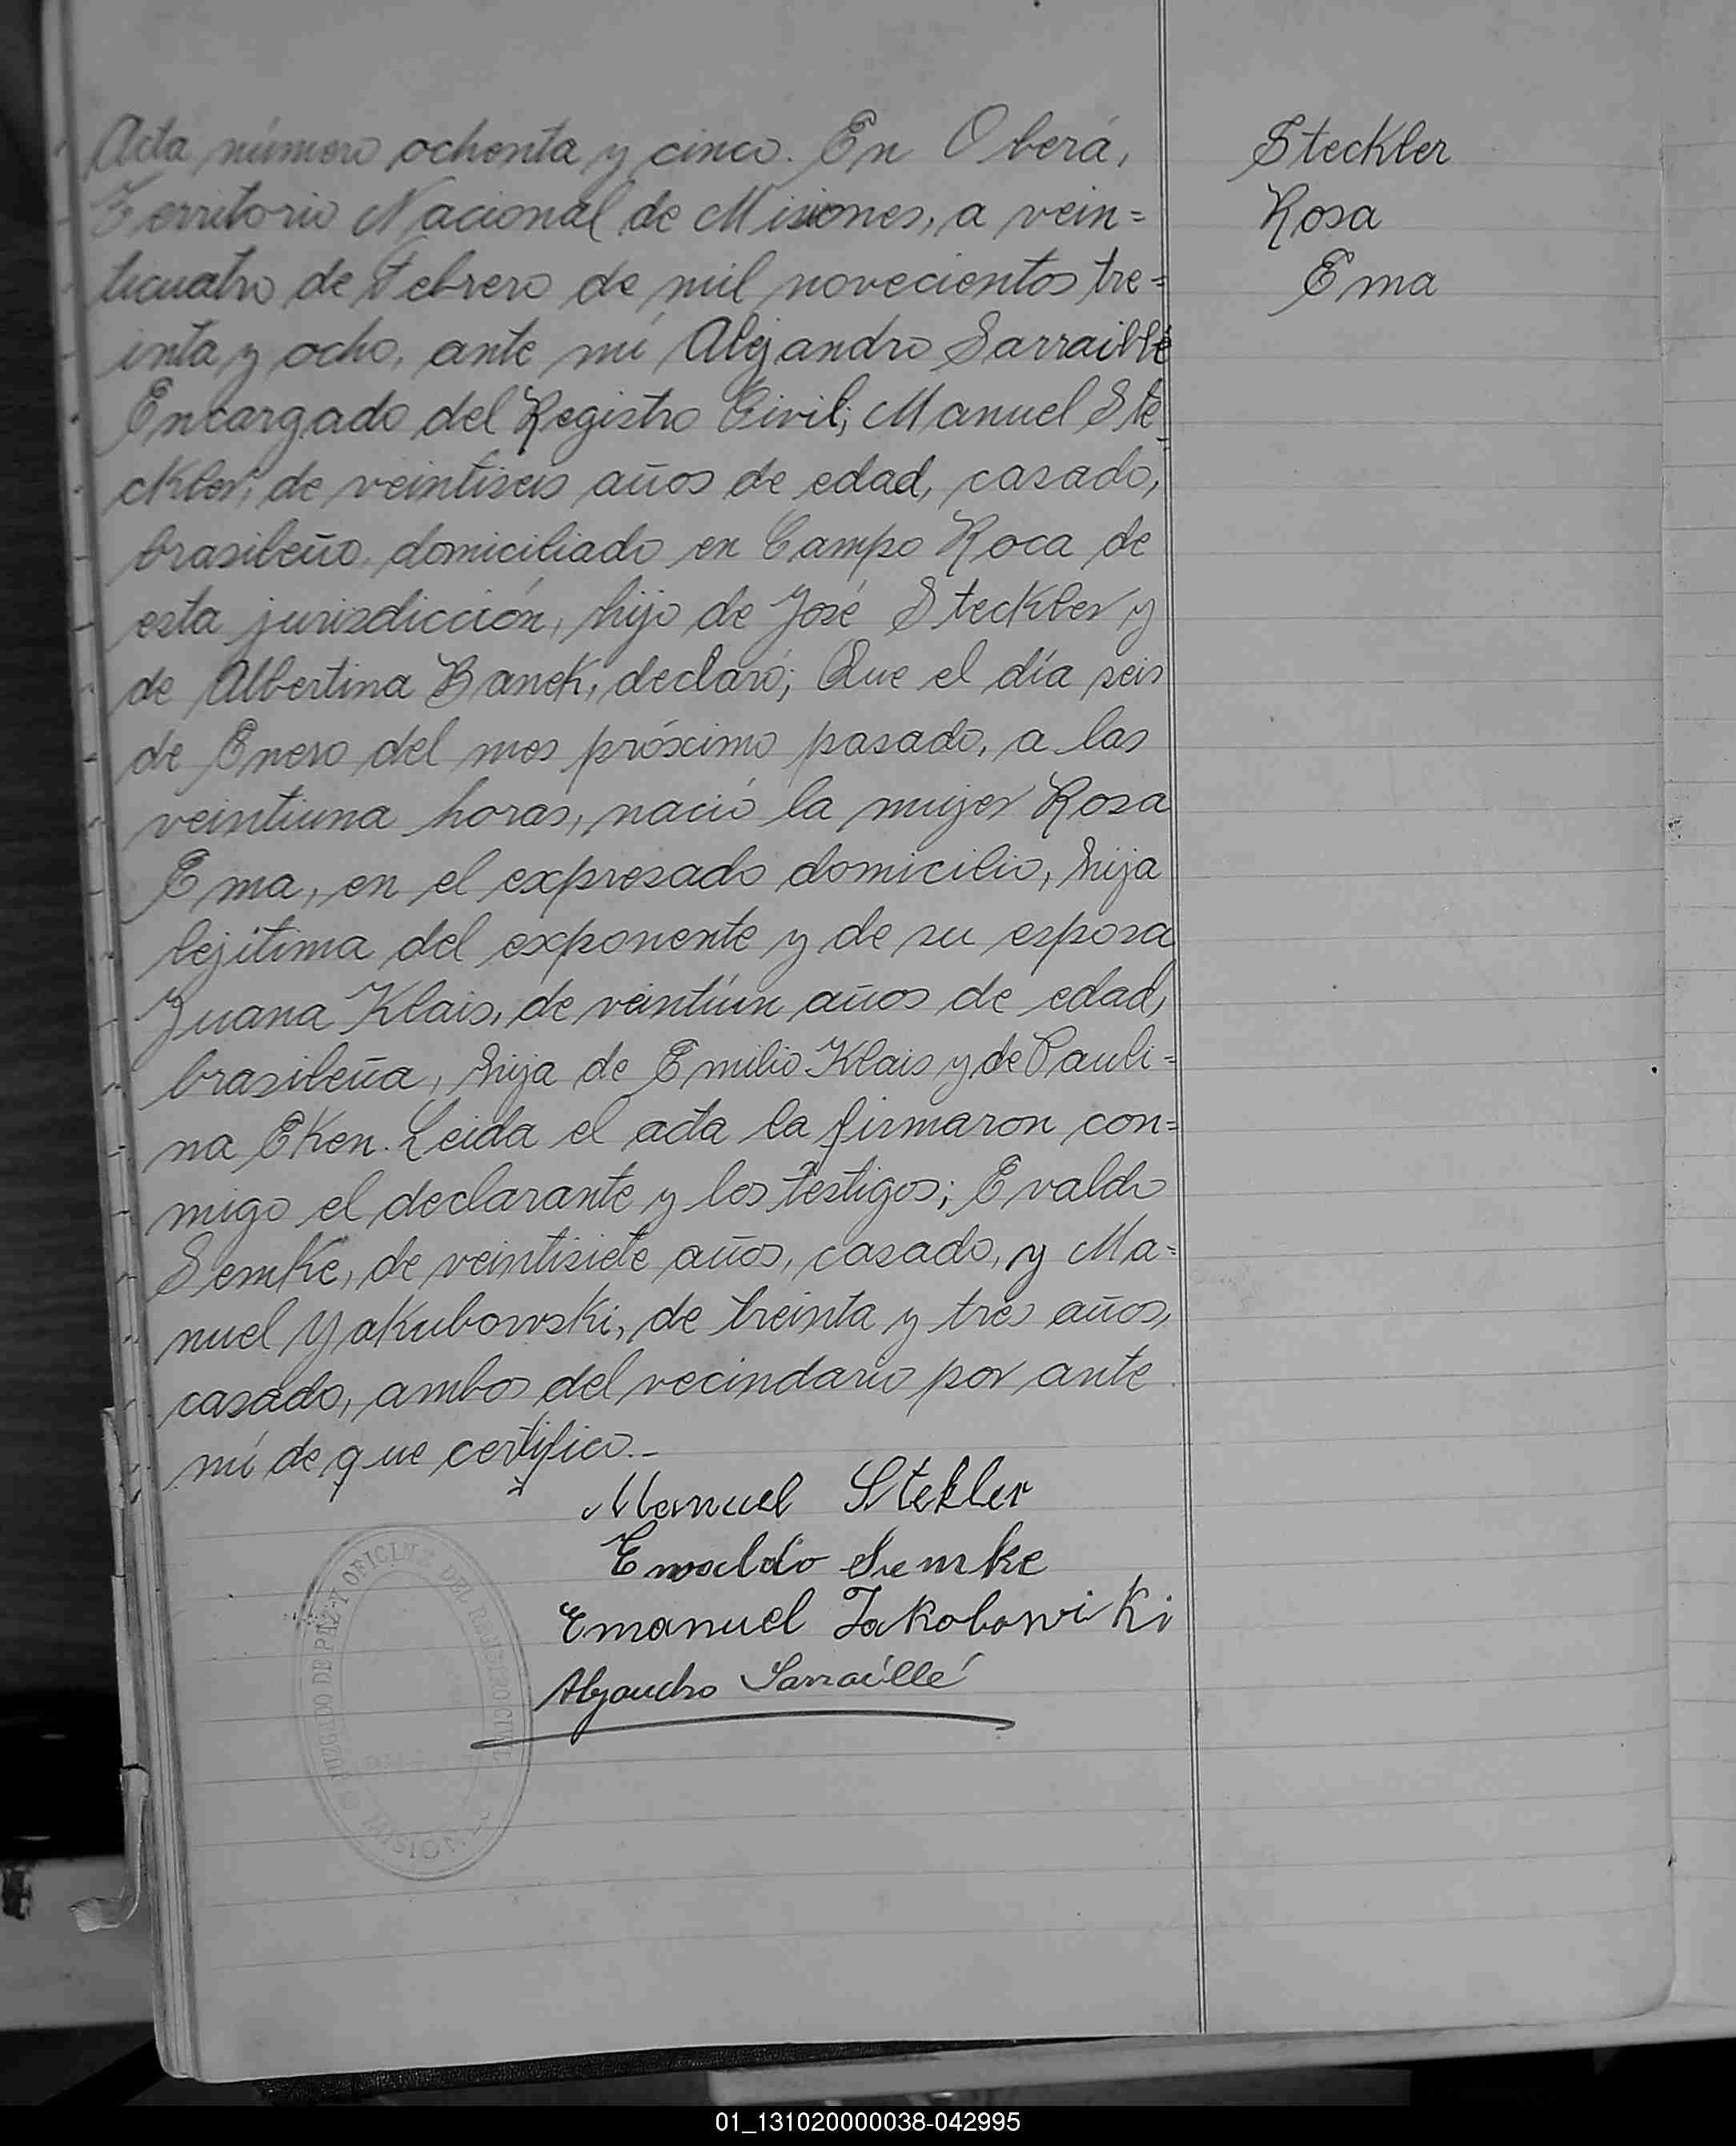 Acta número ochenta y cinco. En Oberá,
Territorio Nacional de Misiones, a vein=
ticuatro de Febrero de mil novecientos tre=
inta y ocho, ante mí Alejandro Sarraillé
Encargado del Registro Civil; Manuel Ste
ckler, de veintiseis años de edad, casado,
brasileño domiciliado en Campo Roca de
esta jurisdicción, hijo de José Steckler y
de Albertina Banek, declaró; Que el día seis
de Enero del mes próximo pasado, a las
veintiuna horas, nació la mujer Rosa
Ema, en el expresado domicilio, hija
lejitima del exponente y de su esposa
Juana Klais, de veintiún años de edad,
brasileña, hija de Emilio Klais y de Pauli=
na EKen. Leida el acta la firmaron con=
migo el declarante y los testigos; Evaldo
Semke, de veintisiete años, casado, y Ma=
nuel Yakubowski, de treinta y tres años,
casado, ambos del vecindario por ante
mí de que certifico.-
Steckler
Rosa
Ema
Manuel Stekler
Ewaldo Semke
Emanuel Jakobowiki
Alejandro Sarraillé
JUZGADO DE PAZ Y OFICINA DEL REGISTRO CIVIL
MISIONES
01_131020000038-042995